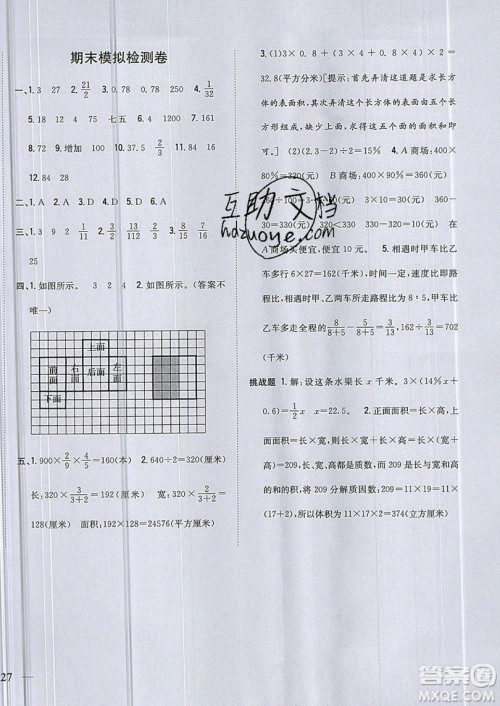 期末模拟检测卷
一、1. 3 27 2. 21/2 3. 0.78 0.78 4. 1/32
5. 75 16 75 七五 6. 4 7. 1200 8. 140
9. 68 10. 增加 100 11. 37.5 12. 2/3 13. 16
14. 12 15. 84 28
二、1. A 2. D 3. B 4. C 5. A
三、1. 9 1/2 2/11 13/10 2/9 2. 1 1/8 19
25
四、1. 如图所示。 3 2 4 2. 如图所示。(答案不
唯一)
上面
前面 右面 后面 左面
下面
五、1. 900×2/9×4/5=160(本) 2. 640÷2=320(厘米)
长:320×3/(3+2)=192(厘米) 宽:320×2/(3+2)=
128(厘米) 面积:192×128=24576(平方厘米)
3. (1)3×0.8+(3×0.8+0.8×
32.8(平方分米)[提示:首先弄清这道题是求长方
体的表面积,其次弄清这个长方体的表面由五个长
方形组成,缺少上面,最后计算出这五个面的面积
之和即可。] (2)(2.3-2)÷2=15% 4. A商场:400×
80%=320(元)
360÷100=3 3×10=30(元) 360-
30=330(元) 320<330 330-320=10(元)
A商场买便宜,便宜10元。 5. 相遇时甲车比乙
车多行6×27=162(千米),速度比甲:乙=8:5,
相遇时甲、乙两车所走路程比为8:5,相遇时甲比
乙车多走全程的 3/13 全程=162÷3/13=702(千
米)
挑战题 1. 解:设这条水渠长x千米。3×(14%x+
0.6)=1/2x x=22.5 2. 正面面积=长×高,上面
面积=长×宽,高+宽=209,长×
(高+宽)=209,意味着209是长与宽和高
的和的积,将209分解质因数:209=11×19=11×
(17+2),所以体积为11×17×2=374(立方厘米)
27
互助文档
hdzuoye.com
答案圈
MXQE.COM